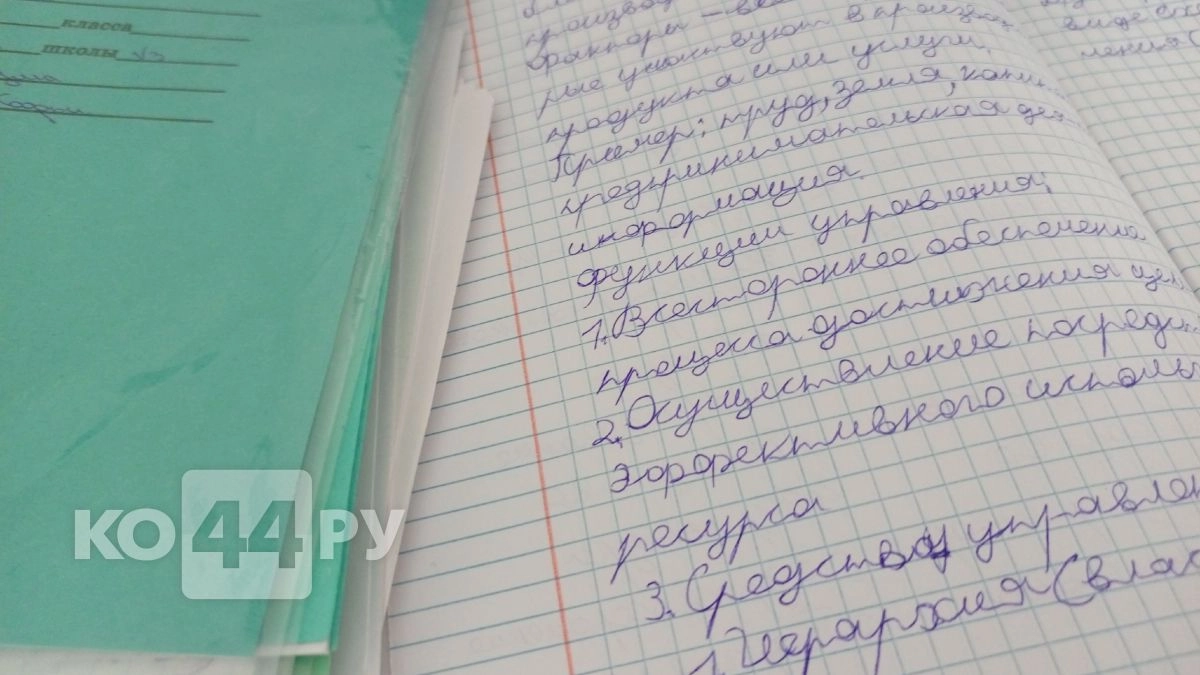 класса
школы №3
производ
факторы – 
рые участвуют в процес
продукта или услуги.
Пример: труд, земля, капи
предпринимательская дея
информация.
функции управления:
1. Всестороннее обеспечение
процесса достижения цел
2. Осуществление посредс
эффективного использ
ресурса
3. Средства управлен
1. Иерархия (влас
виде
ления
КО44РУ